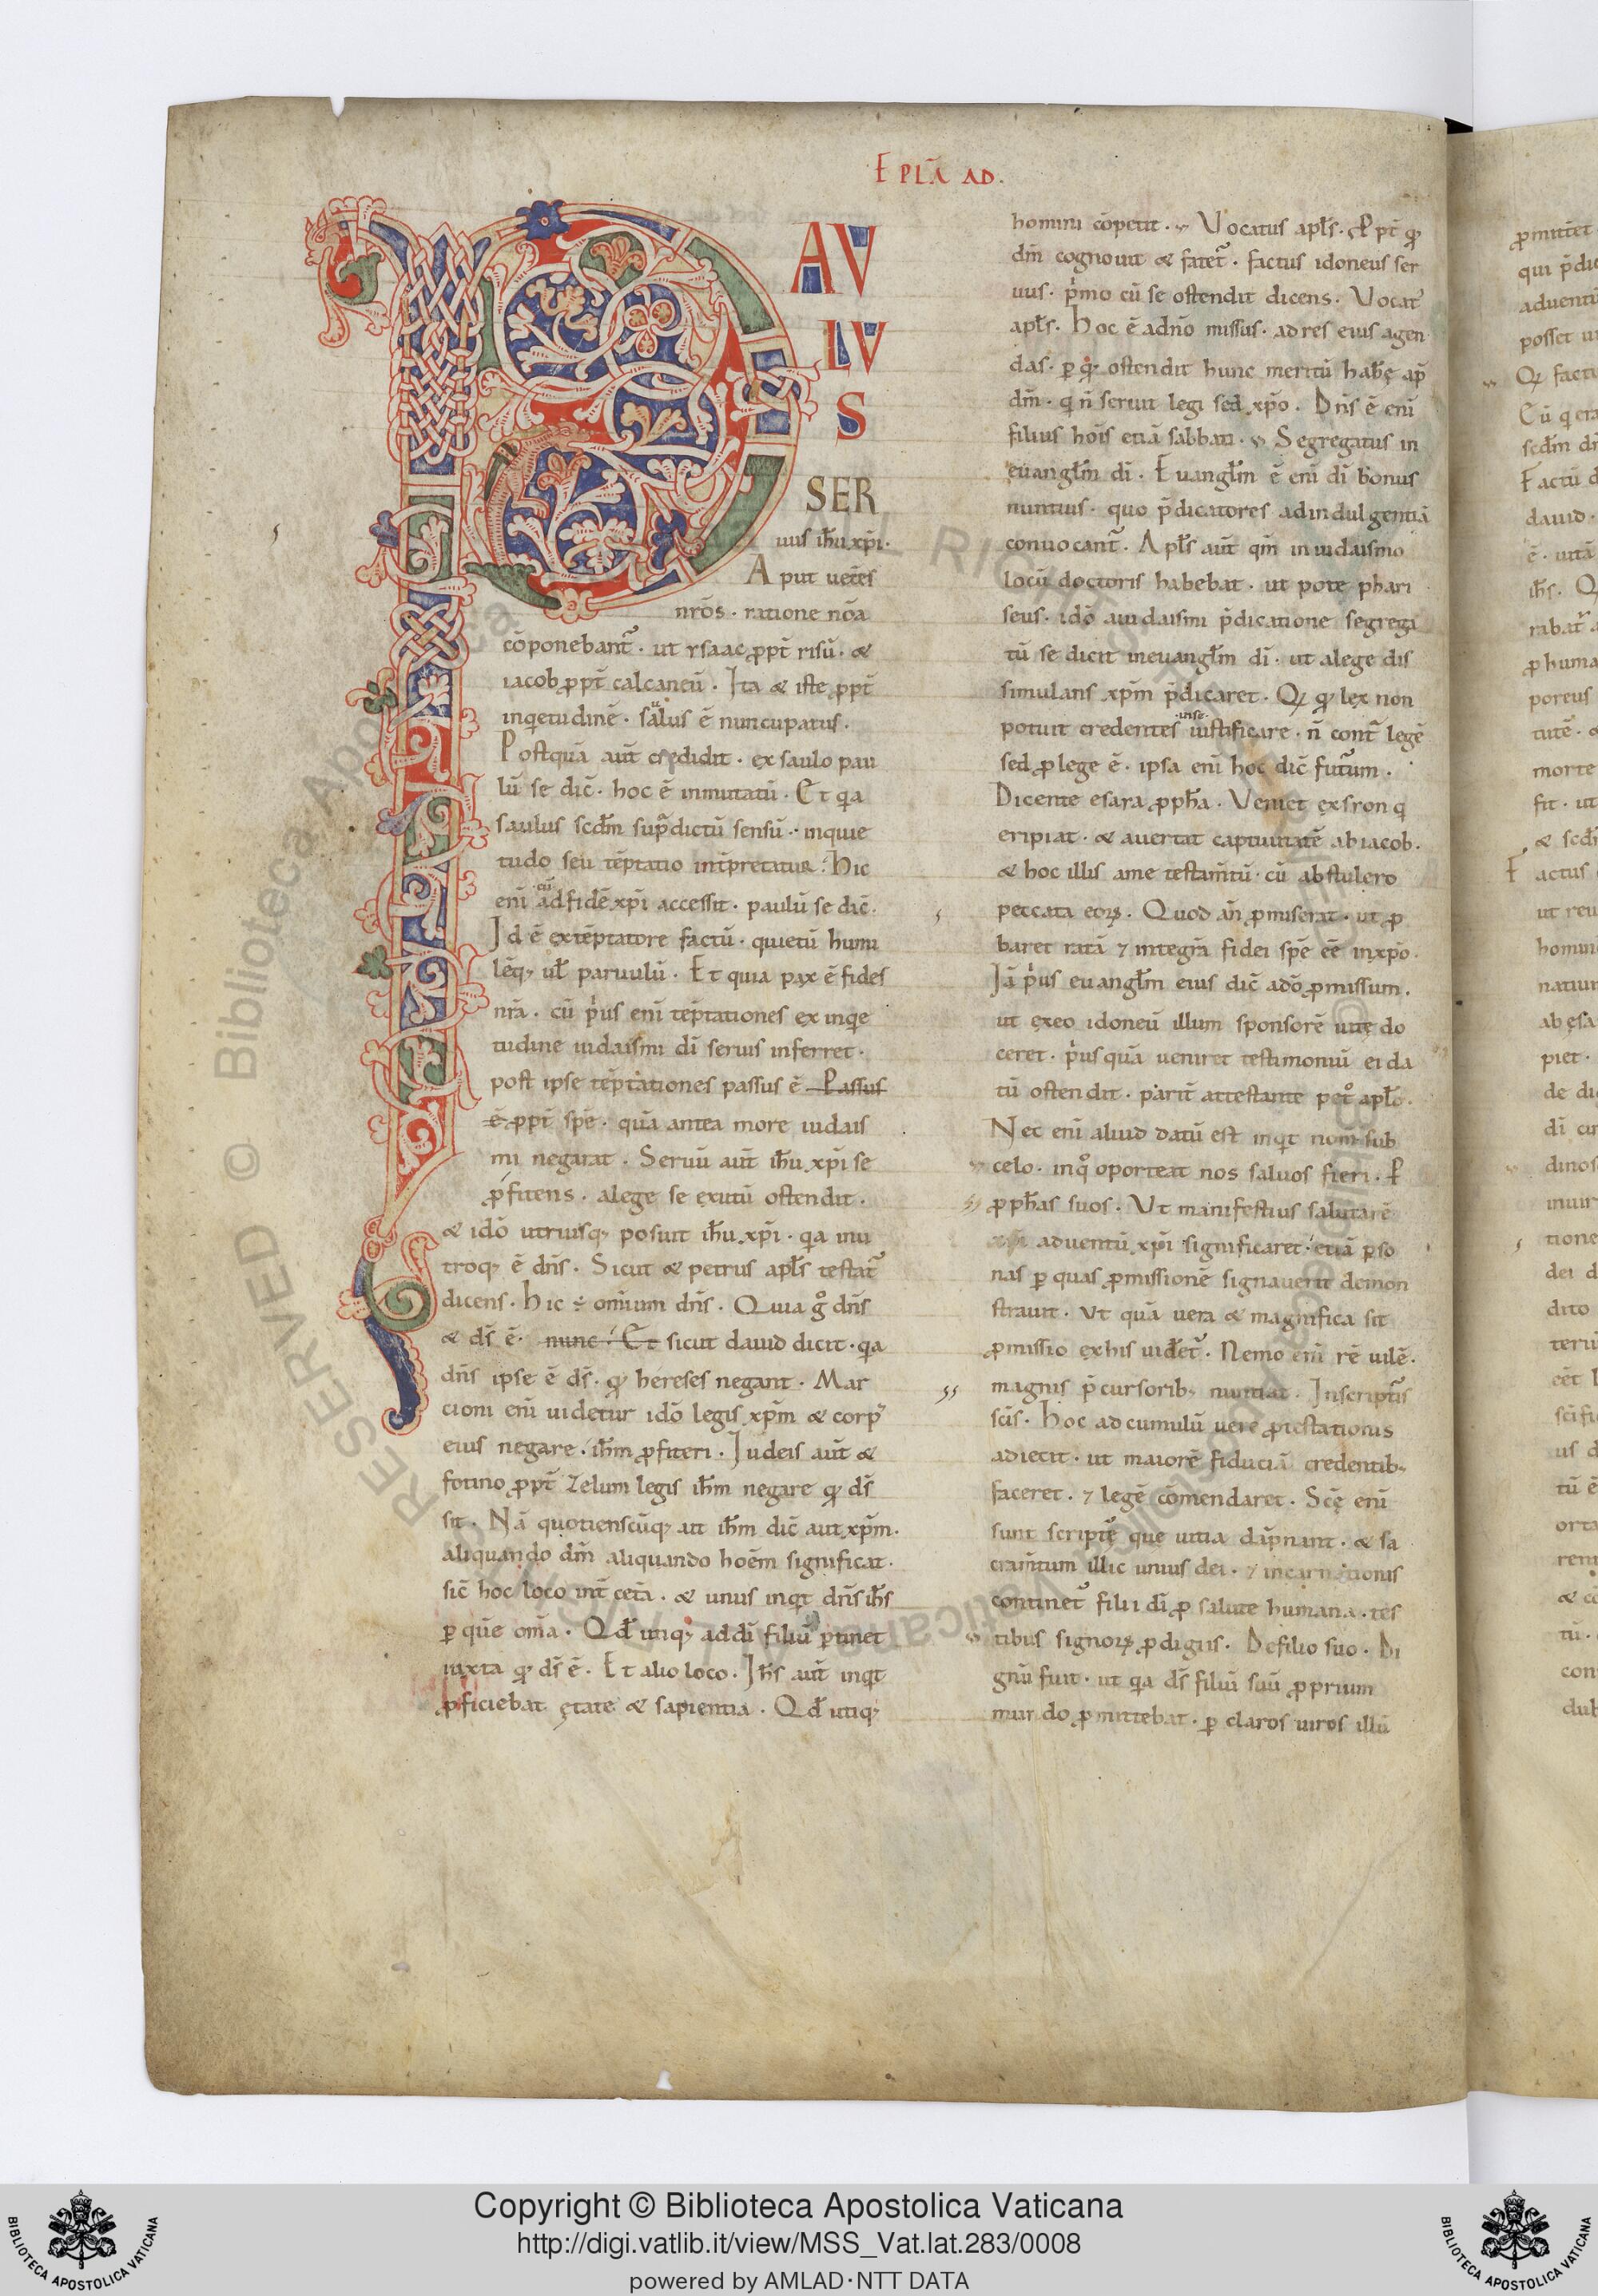 EPLA̅ AD.
PAV
LV
S
SER
uus ih̅u xp̅i·
Aput uet̅es
nr̅os· ratione no̅a
co̅ponebant̅· ut ysaac ꝓpt̅ risu̅· &
iacob ꝓpt̅ calcaneu̅· Ita & iste ꝓpt̅
inq̅etudine̅· saulus e̅ nuncupatus·
Postqua̅ aut̅ credidit· ex saulo pau
lu̅ se dic̅· hoc e̅ inmutatu̅· Et q̅a
saulus scd̅m sup̅dictu̅ sensu̅· inquie
tudo seu te̅ptatio int̅pretatur· hic
eni̅ cu̅ ad fide̅ xp̅i accessit· paulu̅ se dic̅·
Id e̅ exte̅ptatore factu̅· quietu̅ humi
le̅q; ul̅ paruulu̅· Et quia pax e̅ fides
nr̅a· cu̅ p̅us eni̅ te̅ptationes ex inq̅e
tudine iudaismi di̅ seruis inferret·
post ipse te̅ptationes passus e̅ Passus
e̅ ꝓpt̅ spe̅· qua̅ antea more iudais
mi negarat· Seruu̅ aut̅ ih̅u xp̅i se
ꝓfitens· alege se exutu̅ ostendit·
& ido̅ utriusq; posuit ih̅u xp̅i· q̅a inu
troq; e̅ dn̅s· Sicut & petrus apl̅s testat̅
dicens· hic ÷ omium dn̅s· Quia g̊ dn̅s
& ds̅ e̅· nunc· Et sicut dauid dicit· q̅a
dn̅s ipse e̅ ds̅· qđ hereses negant· Mar
cioni eni̅ uidetur ido̅ legis xp̅m & corp᾽
eius negare· ih̅m ꝓfiteri· Iudeis aut̅ &
fotino ꝓpt̅ zelum legis ih̅m negare qđ ds̅
sit· Na̅ quotienscu̅q; aut ih̅m dic̅ aut xp̅m·
aliquando dm̅ aliquando hoe̅m significat·
sic̅ hoc loco int̅ cet̅a· & unus inq̅t dn̅s ih̅s
ꝑ que̅ om̅a· Qđ utiq; ad di̅ filiu̅ ꝑtinet
iuxta qđ ds̅ e̅· Et alio loco· Ih̅s aut̅ inq̅t
ꝓficiebat ętate & sapientia· Qđ utiq;
homini co̅petit· Vocatus apl̅s· ꝓpt̅ qđ
dm̅ cognouit & fatet̅· factus idoneus ser
uus· p̅mo cu̅ se ostendit dicens· Vocat᾽
apl̅s· hoc e̅ adn̅o missus· ad res eius agen
das· ꝑ qđ ostendit hunc meritu̅ hab̅ę ap̅
dm̅· q̅ n̅ seruit legi sed xp̅o· Dn̅s e̅ eni̅
filius hoi̅s etia̅ sabbati· Segregatus in
euangl̅m di̅· Euangl̅m e̅ eni̅ di̅ bonus
nuntius· quo p̅dicatores ad indulgentia̅
conuocant̅· Apl̅s aut̅ qm̅ in iudaismo
locu̅ doctoris habebat· ut pote phari
seus· ido̅ a iudaismi p̅dicatione segrega
tu̅ se dicit in euangl̅m di̅· ut alege dis
simulans xp̅m p̅dicaret· Qđ qđ lex non
potuit credentes in se iustificare· n̅ cont̅ lege̅
sed ꝓ lege e̅· ipsa eni̅ hoc dic̅ fut̅um·
Dicente esaia ꝓph̅a· Veniet exsion q̅
eripiat· & auertat captiuitate̅ ab iacob·
& hoc illis ame testam̅tu̅· cu̅ abstulero
peccata eoꝝ· Quod an̅ ꝓmiserat· ut ꝓ
baret rata̅ ⁊ integr̅a fidei spe̅ ee̅ in xp̅o·
Ia̅ p̅us euangl̅m eius dic̅ ado̅ ꝓmissum·
ut exeo idoneu̅ illum sponsore̅ uitę do
ceret· p̅us qua̅ ueniret testimoniu̅ ei da
tu̅ ostendit· parit̅ attestante pet̊ apl̅o·
Nec eni̅ aliud datu̅ est inq̅t nom̅ sub
celo· inq̊ oporteat nos saluos fieri· P
ꝓph̅as suos· Vt manifestius salutare̅
xp̅i aduentu̅ xp̅i significaret· etia̅ ꝑso
nas ꝑ quas ꝓmissione̅ signauerit demon
strauit· Vt qua̅ uera & magnifica sit
ꝓmissio exhis uid̅et̅· Nemo eni̅ re̅ uile̅·
magnis p̅cursorib; nuntiat· In scriptis
sc̅is· hoc ad cumulu̅ uere ꝓtestationis
adiecit· ut maiore̅ fiducia̅ credentib;
faceret· ⁊ lege̅ co̅mendaret· Sc̅ę eni̅
sunt scriptę̅ que uitia da̅pnant· & sa
cram̅tum illic unius dei· ⁊ incarnationis
continet̅ filii di̅ ꝓ salute humana· tes
tibus signoꝝ ꝓdigiis· De filio suo· Di
gnu̅ fuit· ut q̅a ds̅ filiu̅ suu̅ ꝓprium
mundo ꝓmittebat· ꝑ claros uiros illu̅
Copyright © Biblioteca Apostolica Vaticana
http://digi.vatlib.it/view/MSS_Vat.lat.283/0008
powered by AMLAD·NTT DATA
BIBLIOTECA APOSTOLICA VATICANA
BIBLIOTECA APOSTOLICA VATICANA